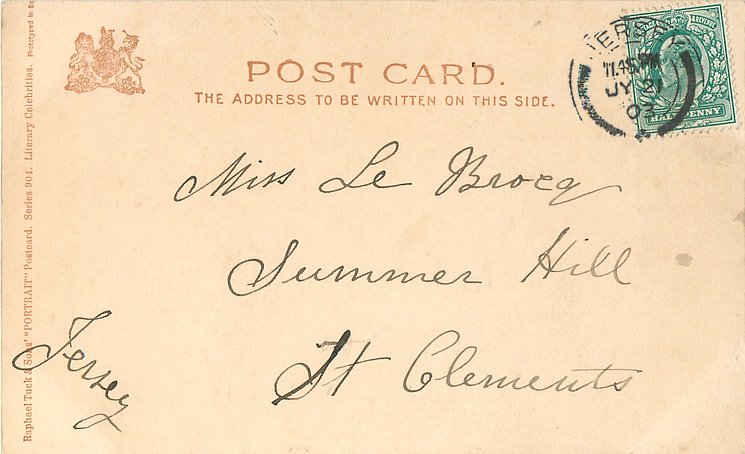 POST CARD.
THE ADDRESS TO BE WRITTEN ON THIS SIDE.
JERSEY
11.45 PM
JY
03
HALFPENNY
Miss Le Brocq
Summer Hill
St Clements
Jersey
Raphael Tuck & Sons' "PORTRAIT" Postcard. Series 904. Literary Celebrities. Phototyped in